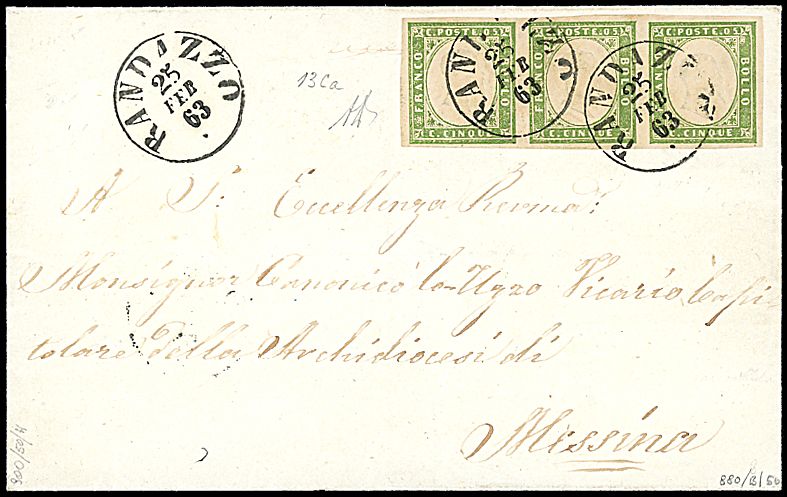 RANDAZZO
25
FEB
63
C. POSTE. 05
FRANCO
BOLLO
C. CINQUE
C. POSTE. 05
FRANCO
BOLLO
C. CINQUE
C. POSTE. 05
FRANCO
BOLLO
C. CINQUE
RANDAZZO
25
FEB
63
RANDAZZO
25
FEB
63
13Ca
A S: Eccellenza Revma:
Monsignor Canonico Vicario Capi-
tolare della Archidiocesi di
Messina
900/50/H
880/B/50